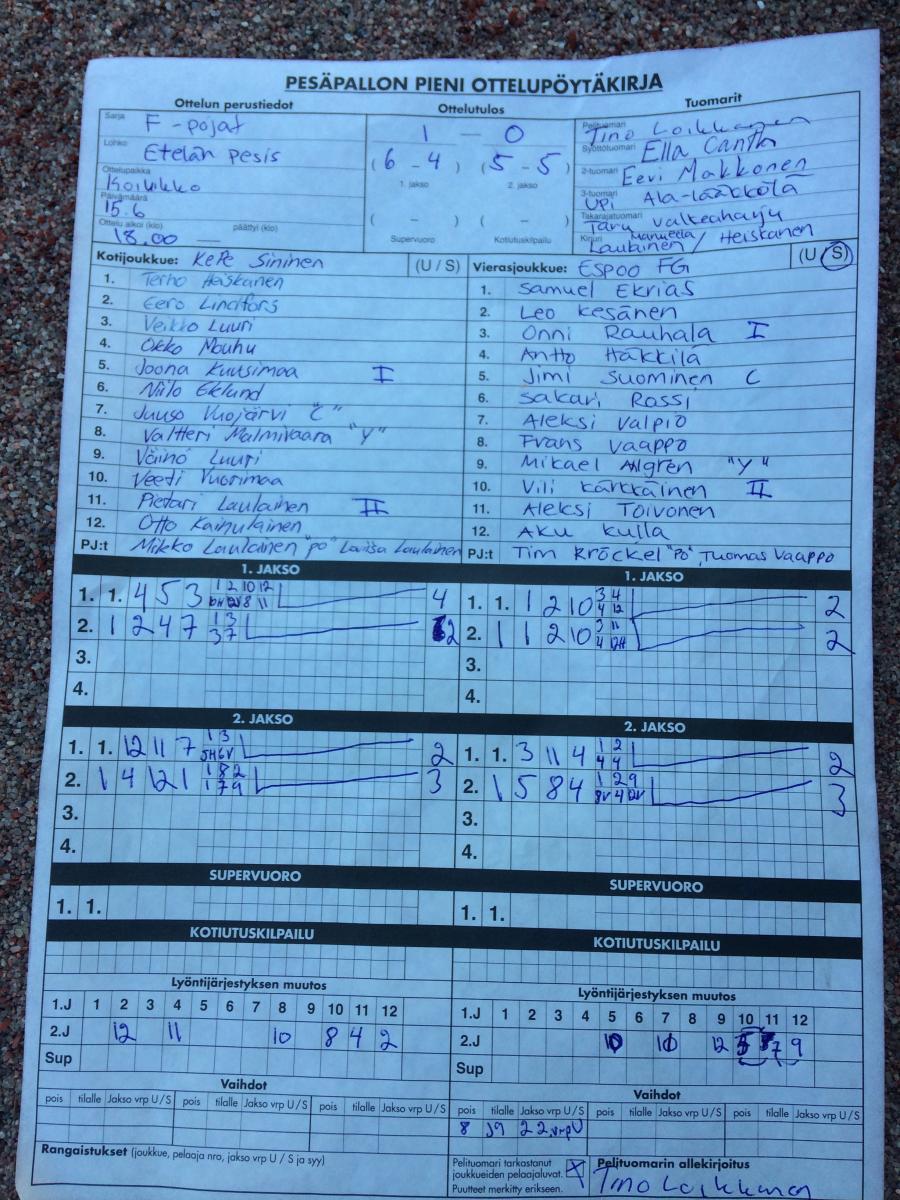 PESÄPALLON PIENI OTTELUPÖYTÄKIRJA
Ottelun perustiedot
Sarja F-pojat
Lohko Etelän pesis
Ottelupaikka Koivikko
Päivämäärä 15.6
Ottelu alkoi (klo) 18.00 — päättyi (klo)
Ottelutulos
1 — 0
(6 - 4) (5 - 5)
1. jakso 2. jakso
( - ) ( - )
Supervuoro Kotiutuskilpailu
Tuomarit
Pelituomari Tino Loikkanen
Syöttötuomari Ella Canth
2-tuomari Eevi Makkonen
3-tuomari Upi Ala-Lääkkölä
Takarajatuomari Taru Valkeaharju
Kirjuri Manuella Laulainen / Heiskanen
Kotijoukkue: KePe Sininen (U / S)
1. Terho Heiskanen
2. Eero Lindfors
3. Veikko Luuri
4. Okko Mouhu
5. Joona Kuusimaa I
6. Niilo Eklund
7. Juuso Vuojärvi "C"
8. Valtteri Malmivaara "Y"
9. Väinö Luuri
10. Veeti Vuorimaa
11. Pietari Laulainen II
12. Otto Kainulainen
PJ:t Mikko Laulainen "PO" Laulainen
Vierasjoukkue: ESPOO FG (U S)
1. Samuel Ekrias
2. Leo Kesänen
3. Onni Rauhala I
4. Antto Häkkilä
5. Jimi Suominen C
6. Sakari Rossi
7. Aleksi Valpio
8. Frans Vaappo
9. Mikael Ahlgren "Y"
10. Vili Kärkkäinen II
11. Aleksi Toivonen
12. Aku Kulla
PJ:t Tim Kröckel "PO", Tuomas Vaappo
1. JAKSO
1. 1. 4 5 3 1 2 10 12 4
8 11
2. 1 2 4 7 1 3 2
3 7
3.
4.
1. JAKSO
1. 1. 1 2 10 3 4 2
4 12
2. 1 1 2 10 3 11 2
4 12H
3.
4.
2. JAKSO
1. 1. 12 11 7 1 3 2
5H 6V
2. 1 4 12 1 1 8 2 3
1 7 9
3.
4.
2. JAKSO
1. 1. 3 11 4 1 2 2
4 4
2. 1 5 8 4 1 2 9 3
8V 4 12V
3.
4.
SUPERVUORO
1. 1.
SUPERVUORO
1. 1.
KOTIUTUSKILPAILU
KOTIUTUSKILPAILU
Lyöntijärjestyksen muutos
1.J 1 2 3 4 5 6 7 8 9 10 11 12
2.J 12 11 10 8 4 2
Sup
Lyöntijärjestyksen muutos
1.J 1 2 3 4 5 6 7 8 9 10 11 12
2.J 10 12 5 7 9
Sup
Vaihdot
pois tilalle Jakso vrp U/S pois tilalle Jakso vrp U/S pois tilalle Jakso vrp U/S
Vaihdot
pois tilalle Jakso vrp U/S pois tilalle Jakso vrp U/S pois tilalle Jakso vrp U/S
8 19 2 2.vrpU
Rangaistukset (joukkue, pelaaja nro, jakso vrp U / S ja syy)
Pelituomari tarkastanut joukkueiden pelaajaluvat. X
Puutteet merkitty erikseen.
Pelituomarin allekirjoitus
Tino Loikkanen